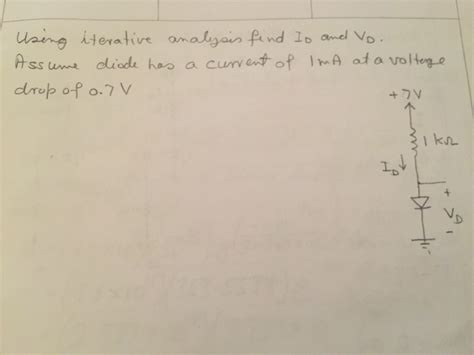 Using iterative analysis find ID and VD.
Assume diode has a current of 1mA at a voltage
drop of 0.7V
+7V
1kΩ
ID↓
+
VD
-